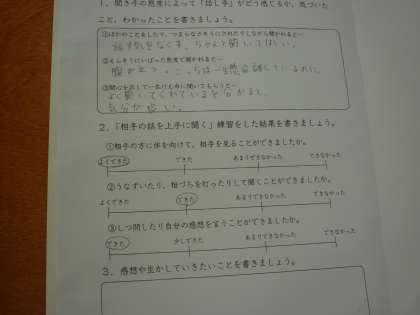 1、聞き手の態度によって「話し手」がどう感じるか、気づいた
こと、わかったことを書きましょう。
①ほかのことをしたり、つまらなさそうにされたりしながら聞かれると…
話す気をなくす、ちゃんと聞いてほしい。
②えらそうにいばった態度で聞かれると…
腹が立つ。こっちは一生懸命話しているのに。
③関心を示して一生けん命に聞いてもらうと…
よく聞いてくれているなと分かるし、
気分が良い。
2、「相手の話を上手に聞く」練習をした結果を書きましょう。
①相手の方に体を向けて、相手を見ることができましたか。
よくできた できた あまりできなかった できなかった
②うなずいたり、相づちを打ったりして聞くことができましたか。
よくできた できた あまりできなかった できなかった
③しつ問したり自分の感想を言うことができましたか。
できた 少しできた あまりできなかった できなかった
3、感想や生かしていきたいことを書きましょう。